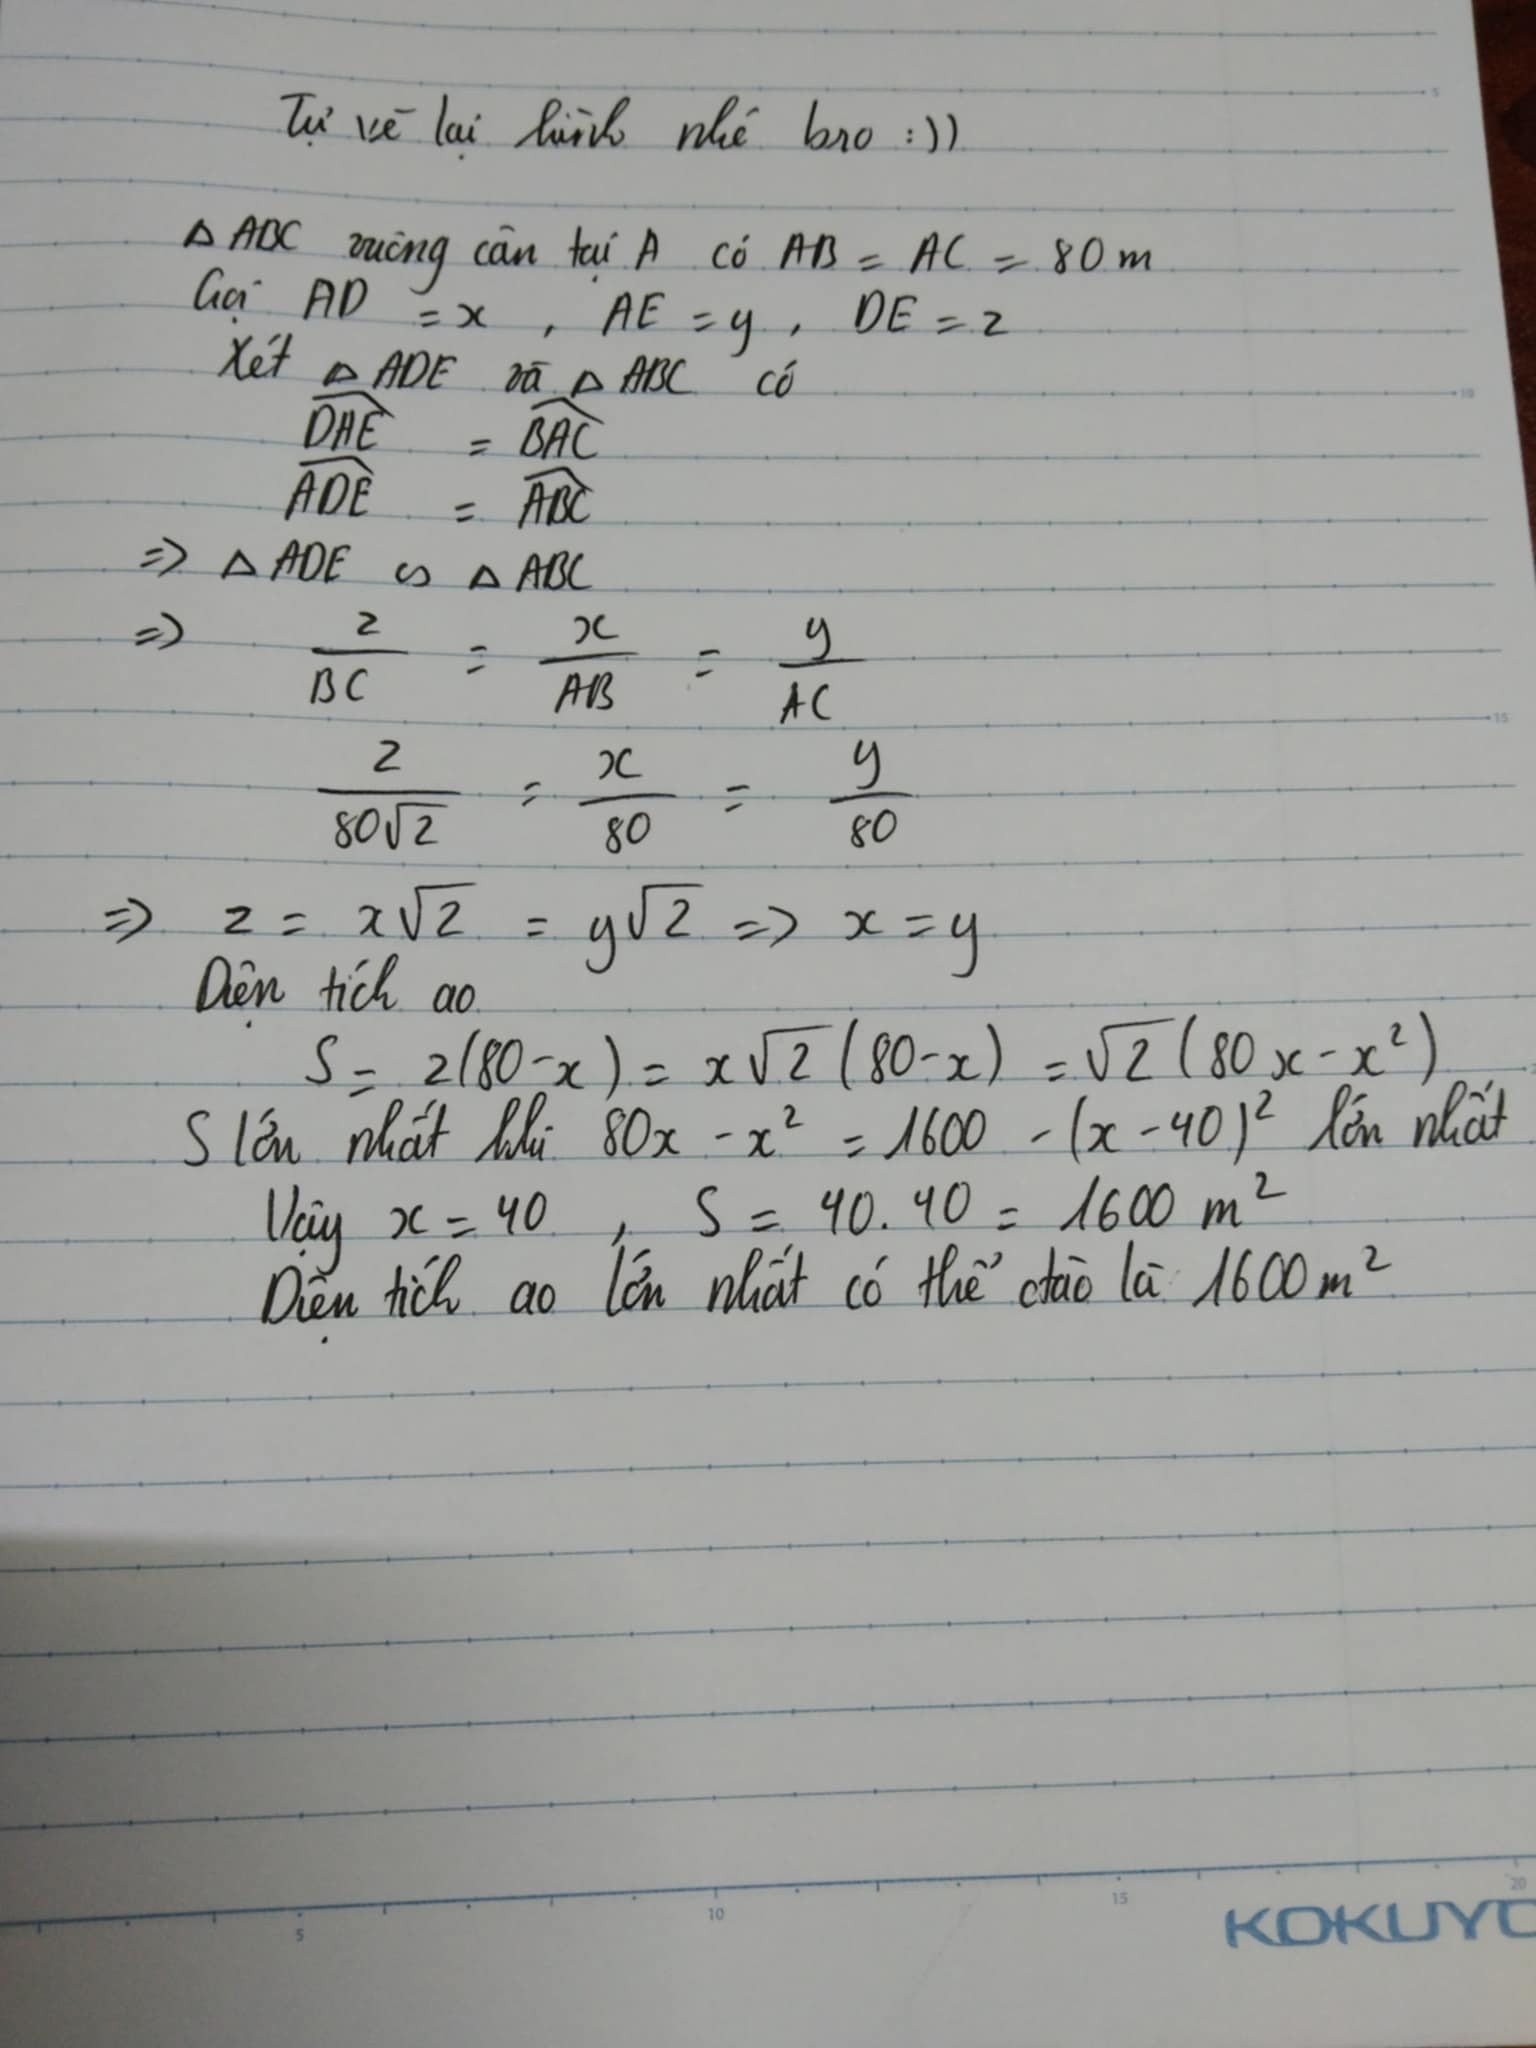 Tự vẽ lại hình nhé bro :))
△ ABC vuông cân tại A có AB = AC = 80 m
Gọi AD = x , AE = y , DE = z
Xét △ ADE và △ ABC có
\widehat{DAE} = \widehat{BAC}
\widehat{ADE} = \widehat{ABC}
=> △ ADE ∽ △ ABC
=> z/BC = x/AB = y/AC
z/80√2 = x/80 = y/80
=> z = x√2 = y√2 => x = y
Diện tích ao
S = z(80-x) = x√2 (80-x) = √2 (80x - x²)
S lớn nhất khi 80x - x² = 1600 - (x - 40)² lớn nhất
Vậy x = 40 , S = 40.40 = 1600 m²
Diện tích ao lớn nhất có thể đào là 1600 m²
5
10
15
5
10
15
20
KOKUYO